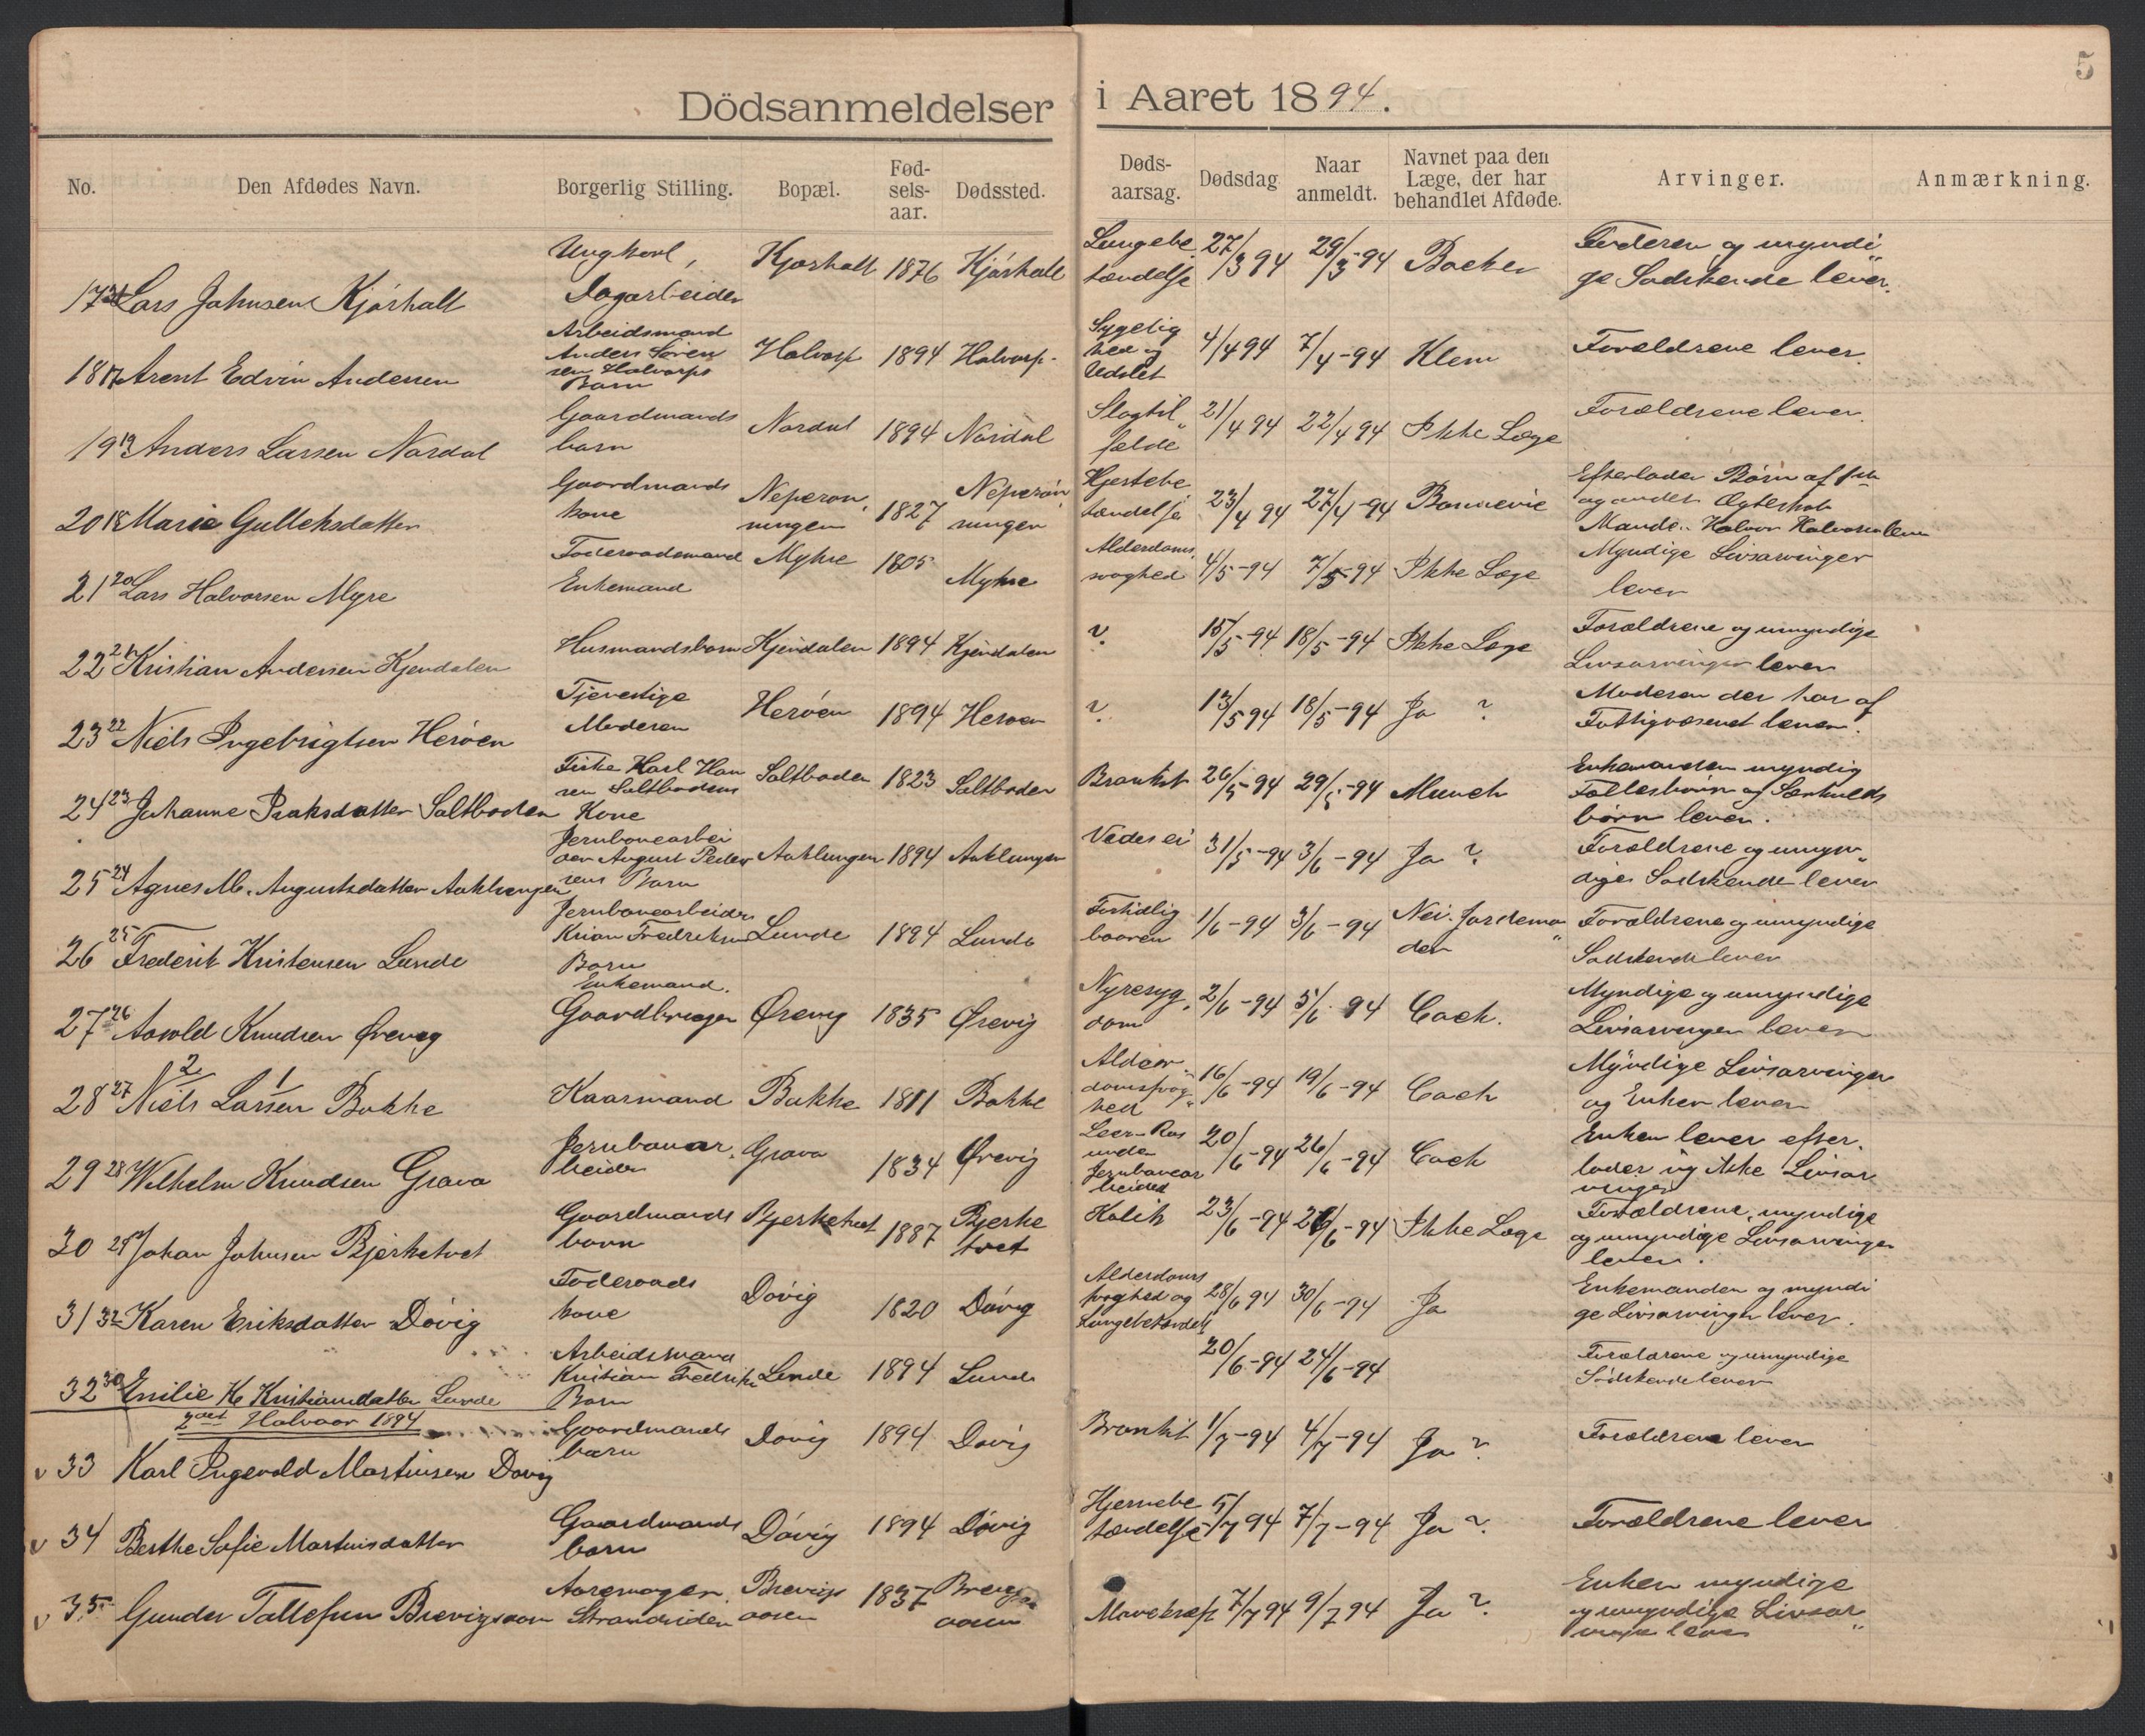 5
Dödsanmeldelser i Aaret 1894.
No. Den Afdødes Navn. Borgerlig Stilling. Bopæl. Fødselsaar. Dødssted. Dødsaarsag. Dødsdag Naar anmeldt. Navnet paa den Læge, der har behandlet Afdøde. Arvinger. Anmærkning.
17 Lars Johnsen Kjørholt Ungkarl, Dagarbeider Kjørholt 1876 Kjørholt Lungebetændelse 27/3 94 29/3-94 Backer Faderen og myndige Sødskende lever.
18 17 Arent Edvin Andersen Arbeidsmand Anders Sørensen Halvarps Barn Halvarp 1894 Halvarp. Sygelighed og Udslet 4/4 94 7/4-94 Klem Forældrene lever.
19 19 Anders Larsen Nordal Gaardmandsbarn Nordal 1894 Nordal Slagtilfælde 21/4 94 22/4 94 Ikke Læge Forældrene lever.
20 18 Marie Gulleksdatter Gaardmandskone 1827 Hjertebetændelse 23/4 94 27/4-94 Bonnevie Efterlader Børn af og andet Ægteskab Manden Halvor Halvorsen lever
21 20 Lars Halvorsen Myre Føderaadsmand Enkemand Myhre 1805 Myhre Alderdomssvaghed 4/5-94 7/5-94 Ikke Læge Myndige Livsarvinger lever
22 21 Kristian Andersen Kjendalen Husmandsbarn Kjendalen 1894 Kjendalen ? 15/5-94 18/5-94 Ikke Læge Forældrene og umyndige Livsarvinger lever
23 22 Niels Ingebrigtsen Herøen Tjenestige Moderen Herøen 1894 Herøen ? 13/5 94 18/5-94 Ja ? Moderen der har af Fattigvæsenet lever.
24 23 Johanne Isaksdatter Saltboden Fisker Karl Hansen Saltbodens Kone Saltboden 1823 Saltboden Bronkit 26/5-94 29/5-94 Munch Enkemanden myndig Fællesbørn og Særkuldsbørn lever.
25 24 Agnes M. Augustsdatter Aaklungen Jernbanearbeider August Pedersens Barn Aaklungen 1894 Aaklungen Vides ei 31/5-94 3/6-94 Ja ? Forældrene og umyndige Sødskende lever
26 25 Frederik Kristensen Lunde Jernbanearbeider Barn Lunde 1894 Lunde Fortidlig baaren 1/6-94 3/6-94 Nei. Jordemoder Forældrene og umyndige Sødskende lever
27 26 Aavold Knudsen Ørevig Enkemand. Gaardbruger Ørevig 1835 Ørevig Nyresygdom 2/6-94 5/6 94 Cock. Myndige og umyndige Livsarvinger lever
28 27 2 1 Niels Larsen Bakke Kaarmand Bakke 1811 Bakke Alderdomssvaghed 16/6-94 19/6-94 Cock Myndige Livsarvinger og Enken lever
29 28 Wilhelm Knudsen Grava Jernbanearbeider Grava 1834 Ørevig Leer-Ras under Jernbanearbeidet 20/6-94 26/6-94 Cock Enken lever efterlader sig ikke Livsarvinger
30 29 Johan Johnsen Bjerketvet Gaardmandsbarn Bjerketvet 1887 Bjerketvet Kolik 23/6-94 26/6-94 Ikke Læge Forældrene, myndige og umyndige Livsarvinger lever.
31 32 Karen Eriksdatter Døvig Føderaadskone Døvig 1820 Døvig Alderdomssvaghed og Lungebetændels 28/6 94 30/6-94 Ja Enkemanden og myndige Livsarvinger lever.
32 30 Emilie K. Kristiansdatter Lunde Arbeidsmand Kristian Fredriks Barn Lunde 1894 Lunde 20/6-94 24/6-94 Forældrene og umyndige Sødskende lever
2det Halvaar 1894
v 33 Karl Ingevald Martinsen Døvig Gaardmandsbarn Døvig 1894 Døvig Bronkit 1/7-94 4/7-94 Ja ? Forældrene lever
v 34 Berthe Sofie Martinsdatter Gaardmandsbarn Døvig 1894 Døvig Hjernebetændelse 5/7 94 7/7-94 Ja ? Forældrene lever
v 35 Gunder Tallefsen Brevigsaasen Aaremager Strandsidder Brevigsaasen 1837 Brevigsaasen Mavekræft 7/7 94 9/7 94 Ja ? Enken myndige og umyndige Livsarvinger lever